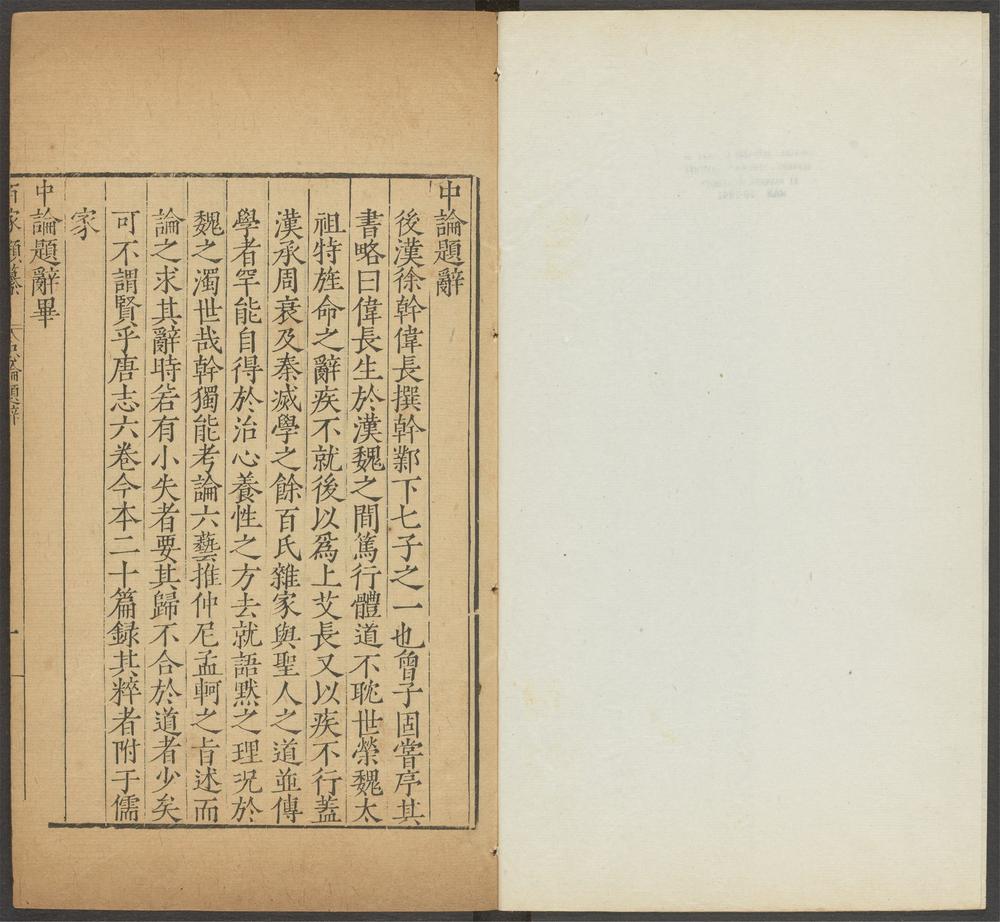 中論題辭
後漢徐幹偉長撰幹鄴下七子之一也曾子固嘗序其
書略曰偉長生於漢魏之間篤行體道不耽世榮魏太
祖特旌命之辭疾不就後以爲上艾長又以疾不行蓋
漢承周衰及秦滅學之餘百氏雜家與聖人之道並傳
學者罕能自得於治心養性之方去就語黙之理況於
魏之濁世哉幹獨能考論六藝推仲尼孟軻之旨述而
論之求其辭時若有小失者要其歸不合於道者少矣
可不謂賢乎唐志六卷今本二十篇録其粹者附于儒
家
中論題辭畢